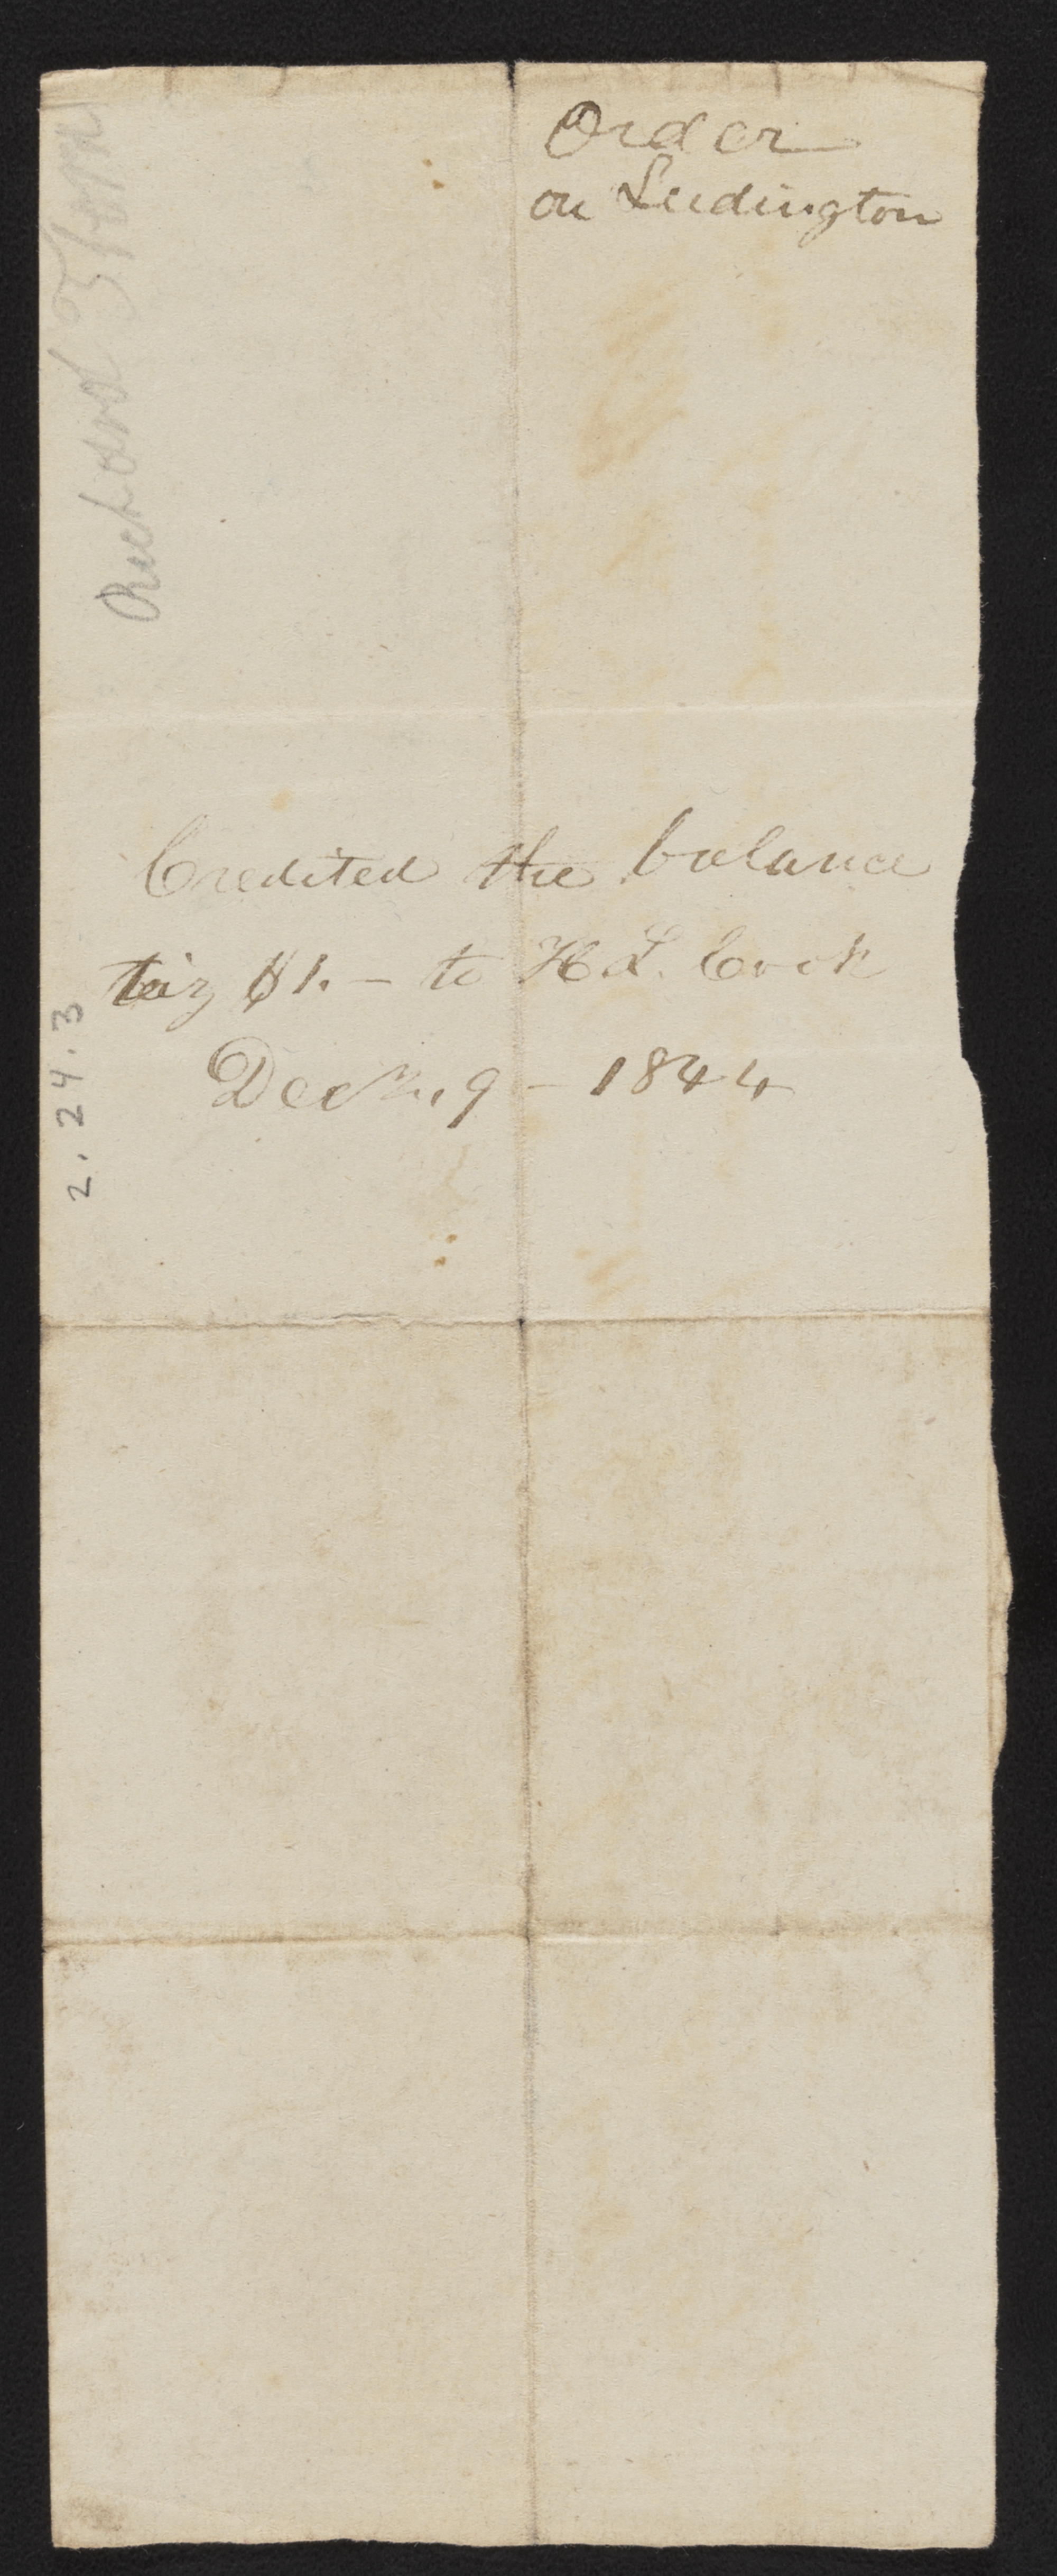 Order
on Ludington
Credited the balance
viz $1. – to H L. Cook
Decr. 9 – 1844
2.24.3
Richard